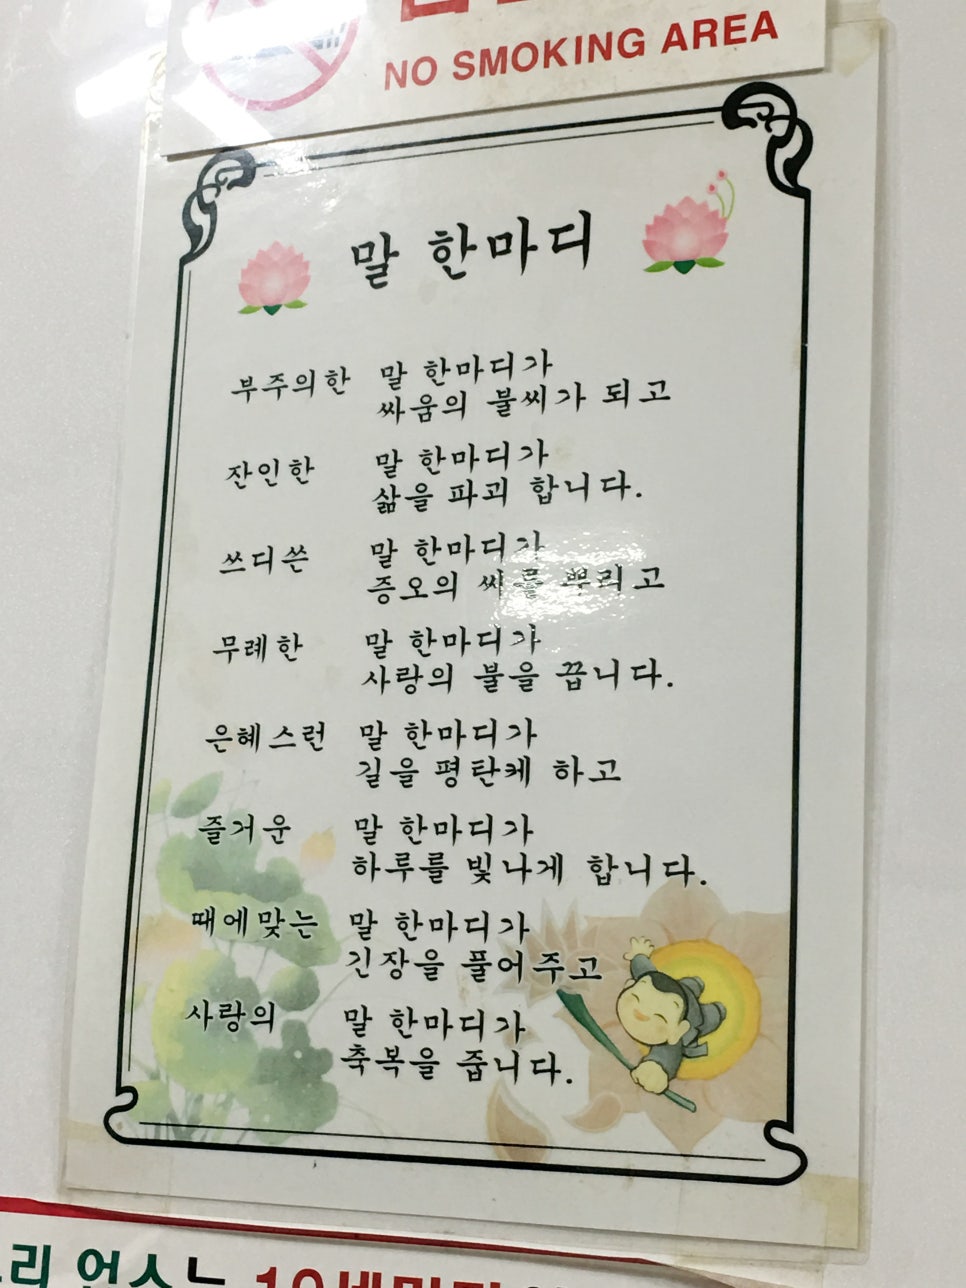 NO SMOKING AREA
말 한마디
부주의한 말 한마디가
싸움의 불씨가 되고
잔인한 말 한마디가
삶을 파괴 합니다.
쓰디쓴 말 한마디가
증오의 씨를 뿌리고
무례한 말 한마디가
사랑의 불을 끕니다.
은혜스런 말 한마디가
길을 평탄케 하고
즐거운 말 한마디가
하루를 빛나게 합니다.
때에맞는 말 한마디가
긴장을 풀어주고
사랑의 말 한마디가
축복을 줍니다.